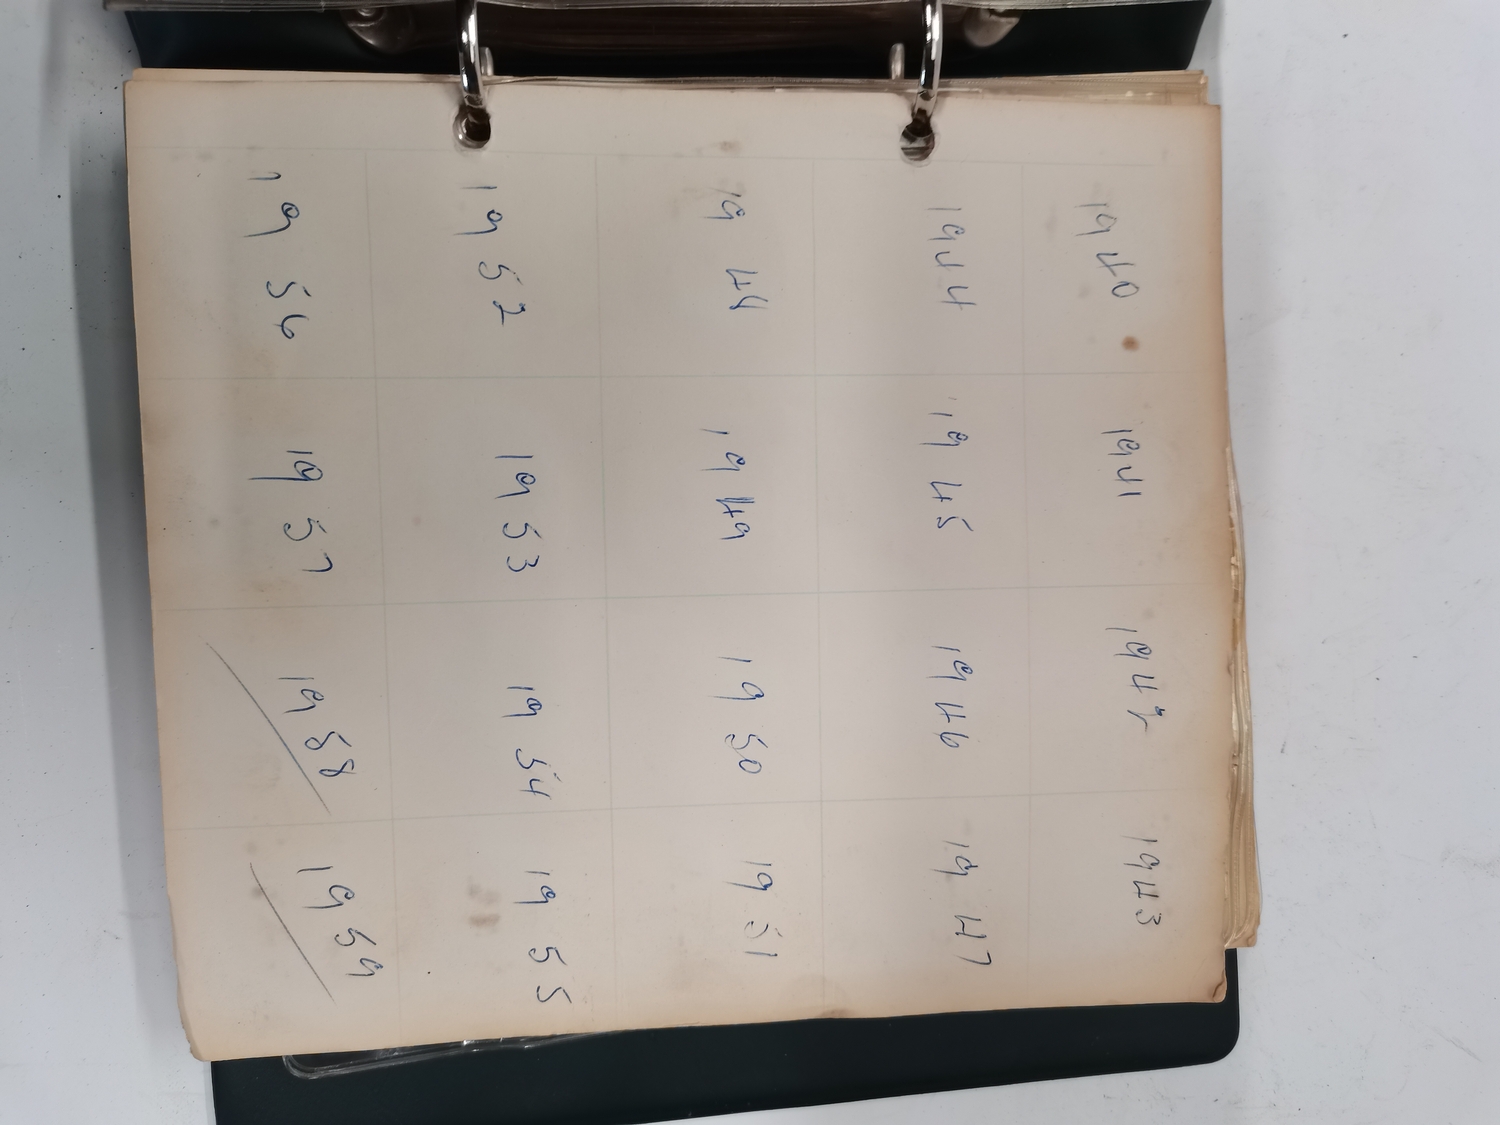 1940 1941 1942 1943
1944 1945 1946 1947
19 48 19 49 19 50 19 51
19 52 19 53 19 54 19 55
19 56 19 57 19 58 19 59